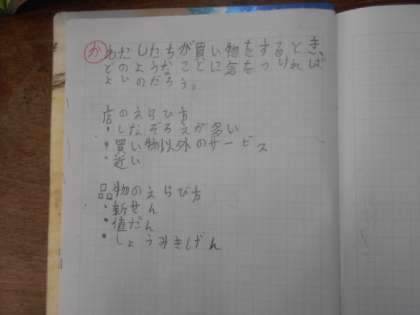 か わたしたちが買い物をするとき
どのような ことに気をつければ
よいのだろう。
店のえらび方
・しなぞろえが多い
・買い物以外のサービス
・近い
品物のえらび方
・新せん
・値だん
・しょうみきげん